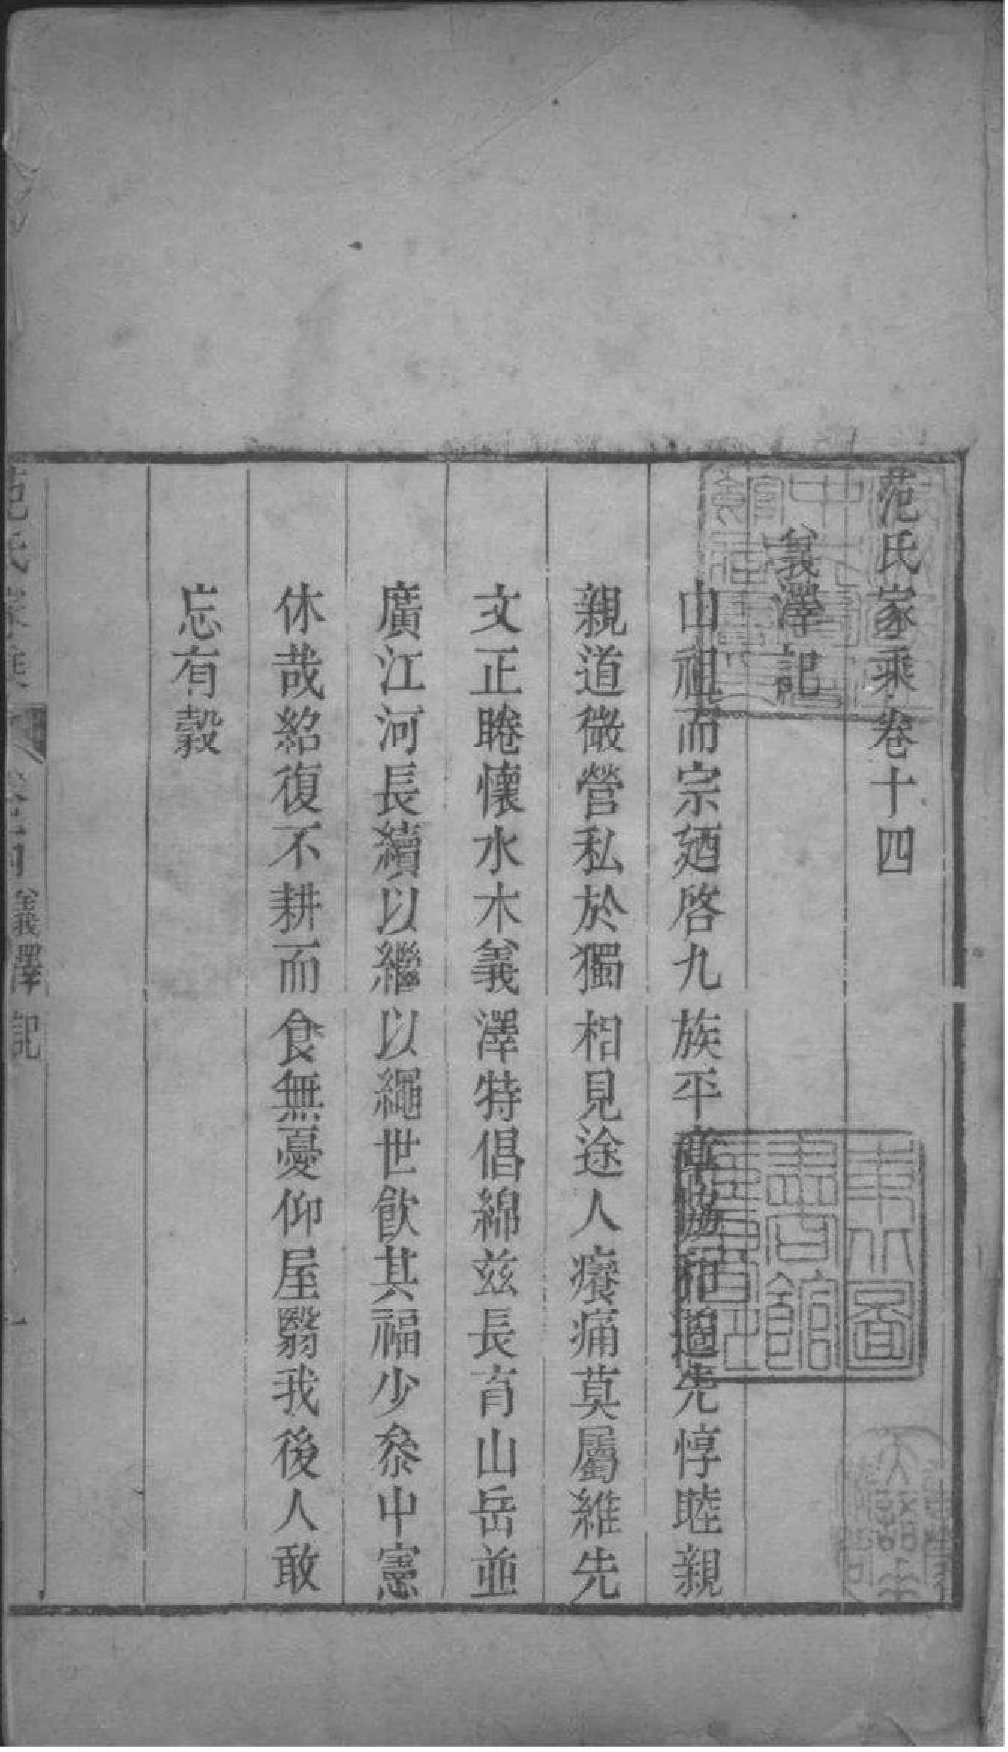 范氏家乘卷十四
義澤記
由祖而宗廼啓九族平章協和適先惇睦親
親道微營私於獨相見途人癢痛莫屬維先
文正睠懷水木義澤特倡綿兹長育山岳並
廣江河長續以繼以繩世飲其福少叅中憲
休哉紹復不耕而食無憂仰屋翳我後人敢
忘有穀
范氏家乘 卷十四 義澤記 一